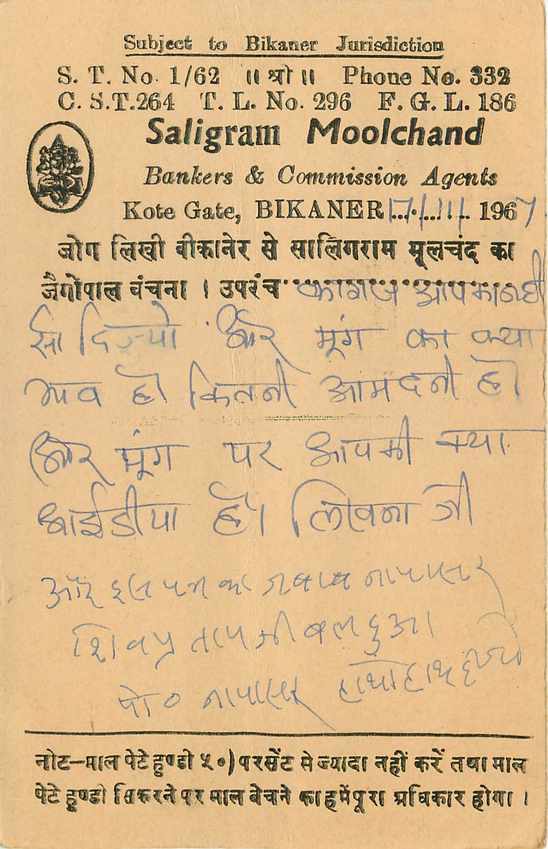 Subject to Bikaner Jurisdiction
S. T. No. 1/62 ॥ श्री ॥ Phone No. 332
C. S.T.264 T. L. No. 296 F. G. L. 186
Saligram Moolchand
Bankers & Commission Agents
Kote Gate, BIKANER 17/11/ 1967
जोग लिखी बीकानेर से सालिगराम मूलचंद का
जैगोपाल बंचना । उपरंच कागज आप
दिज्यो और मूंग का क्या
भाव है कितनी आमदनी है।
और मूंग पर आपकी क्या
आईडीया है। लिखना जी
और इस पत्र का जबाब नापासर
शिवप्रतापजी
पो० नापासर हाथोहाथ
नोट—माल पेटे हुण्डी ५०) परसेंट से ज्यादा नहीं करें तथा माल
पेटे हुण्डी सिकरने पर माल बेचने का हमें पूरा अधिकार होगा ।